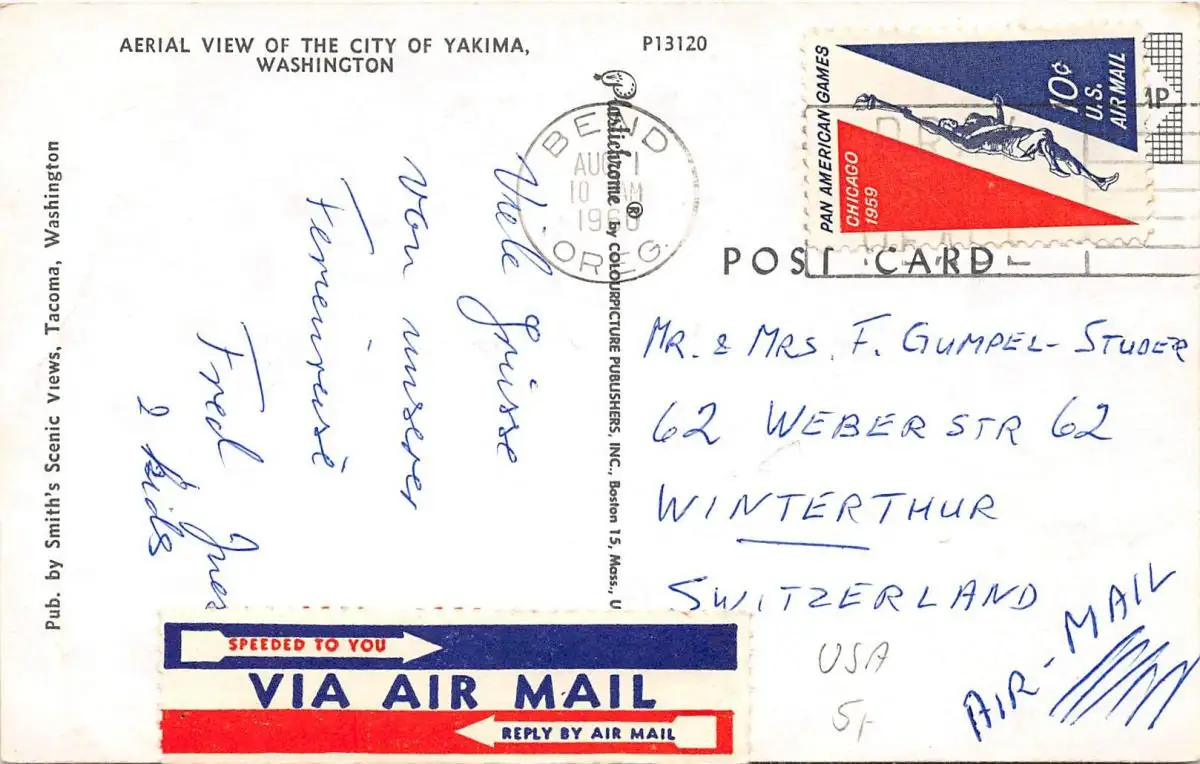 AERIAL VIEW OF THE CITY OF YAKIMA,
WASHINGTON
P13120
Pub. by Smith's Scenic Views, Tacoma, Washington
Plastichrome® by COLOURPICTURE PUBLISHERS, INC., Boston 15, Mass., U
BEND
AUG 1
10 AM
1960
OREG.
PAN AMERICAN GAMES
CHICAGO
1959
10¢
U.S.
AIR MAIL
POST CARD
Viele Grüsse
von unserer
Ferienreise
Fred Ines
2 kids
MR. & MRS. F. GUMPEL-STUDER
62 WEBER STR 62
WINTERTHUR
SWITZERLAND
AIR-MAIL
USA
5,-
SPEEDED TO YOU
VIA AIR MAIL
REPLY BY AIR MAIL